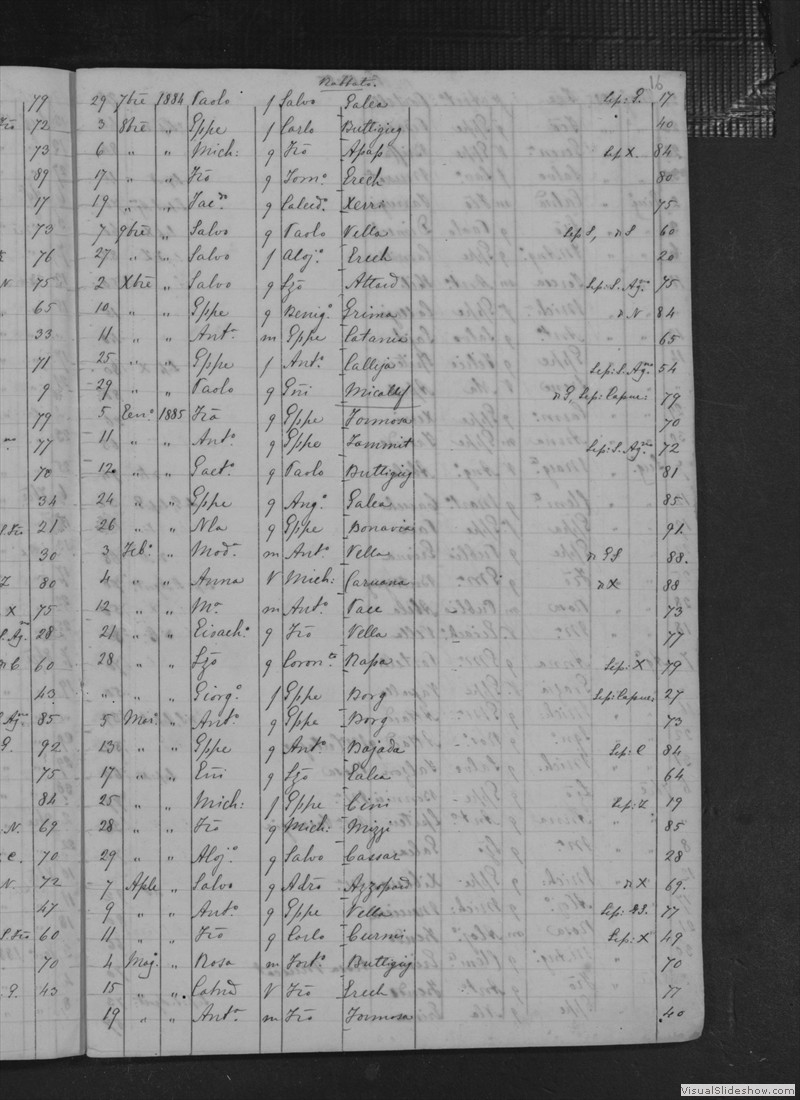 Rabbato. 16
79 29 7bre 1884 Paolo f Salvo Galea Sep: P. 17
72 3 8bre " Gppe f Carlo Buttigieg 40
73 6 " " Mich: g Frō Apap Sep X. 84
89 17 " " Frō g Tomo. Grech 80
17 19 " " g Calced.o Xerri 75
73 7 9bre " Salvo g Paolo Vella Sep S, n S 60
76 27 " " Salvo f Aloj.o Grech 20
N. 75 2 Xbre " Salvo g Lzō Attard Sep: S. Ag.no 75
65 10 " " Gppe g Benig.o Grima n N 84
33 11 " " Ant.a m Gppe Catania 65
71 25 " " Gppe f Ant.o Calleja Sep: S. Ag.no 54
9 29 " " Paolo g Gñi Micallef n G, Sep: Capuc: 79
79 5 Gen.o 1885 Frō g Gppe Formosa 70
77 11 " " Ant.o g Gppe Zammit Sep: S. Ag.no 72
70 12 " " Gaet.o g Paolo Buttigieg 81
34 24 " " Gppe g Ang.o Galea 85
21 26 " " Nla g Gppe Bonavia 91.
30 3 Feb.o " Mod.a m Ant.o Vella n GS 88.
80 4 " " Anna V Mich: Caruana n X 88
X 75 12 " " M.a m Ant.o Pace 73
28 21 " " g Frō Vella 77
60 28 " " Lzō g Coron.to Rapa Sep: X 79
43 " " " Giorg.o f Gppe Borg Sep: Capuc: 27
85 5 " Ant.o g Gppe Borg 73
92 13 " " Gppe g Ant.o Bajada Sep: C 84
75 17 " " Gñi g Lzō Galea 64
84 25 " " Mich: f Gppe Cini Sep: Z 19
N. 69 28 " " Frō g Mich: Mizzi 85
C. 70 29 " " Aloj.o g Salvo Cassar 28
N. 72 7 Aple " Salvo g Adrō Azzopard n X 69.
47 9 " " Ant.o g Gppe Vella 77
60 11 " " Frō g Carlo Curmi Sep: X 49
70 4 Mag. " Rosa m Buttigieg 70
43 15 " " V Frō Grech 77
19 " " Ant.a m Frō Formosa 40
VisualSlideshow.com